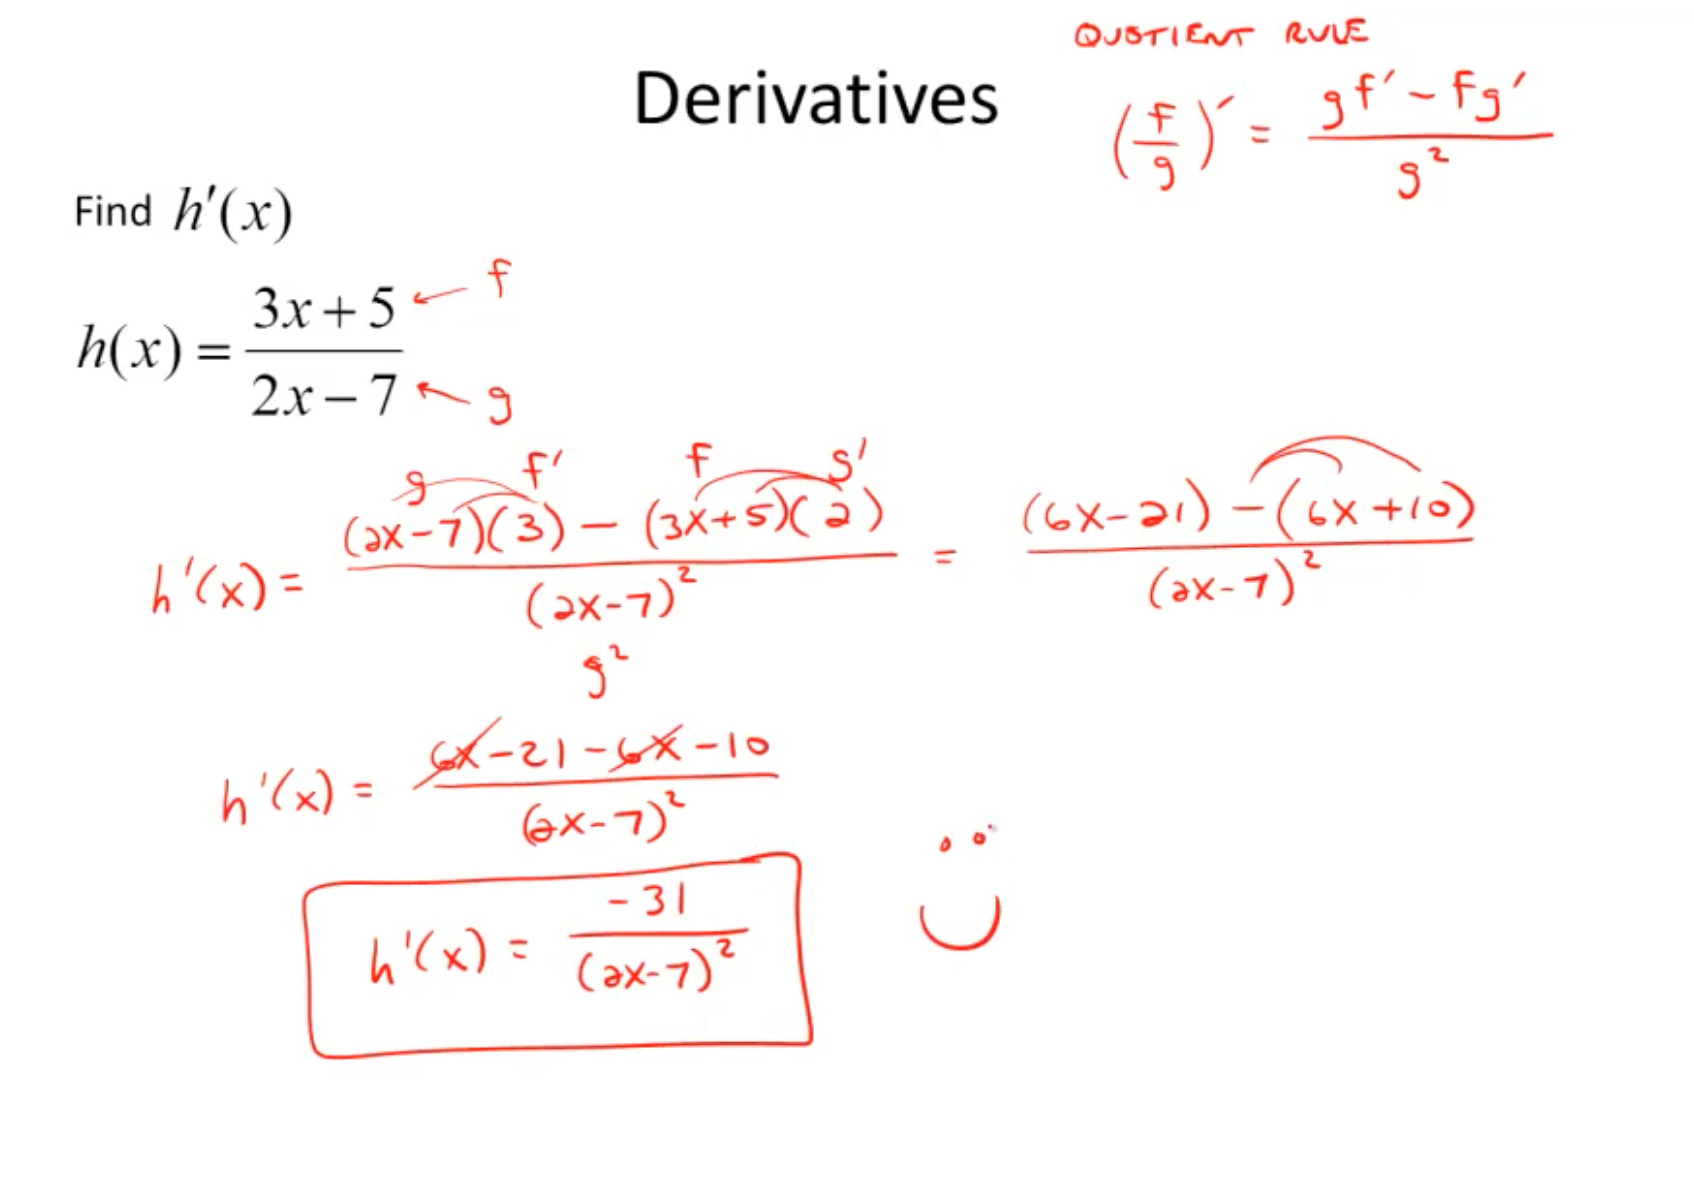 QUOTIENT RULE
Derivatives
(f/g)′ = (gf′ - fg′)/g²
Find h′(x)
h(x) = (3x + 5)/(2x − 7)
f
g
g f′ f g′
h′(x) = ((2x-7)(3) - (3x+5)(2))/(2x-7)² = ((6x-21) - (6x+10))/(2x-7)²
g²
h′(x) = (6x-21-6x-10)/(2x-7)²
h′(x) = -31/(2x-7)²